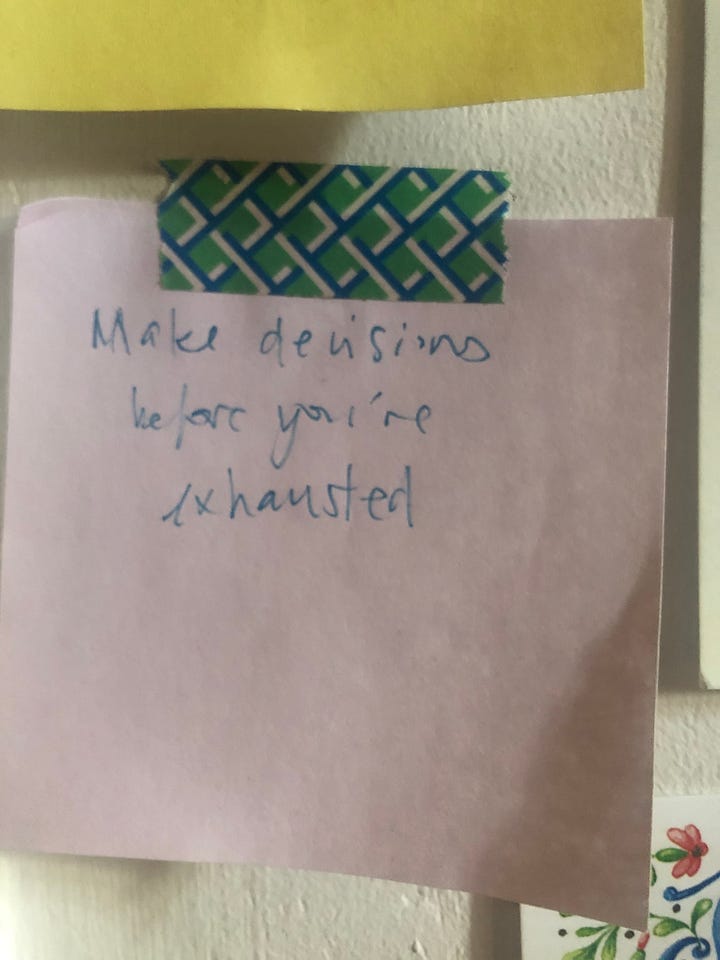 Make decisions
before you're
exhausted